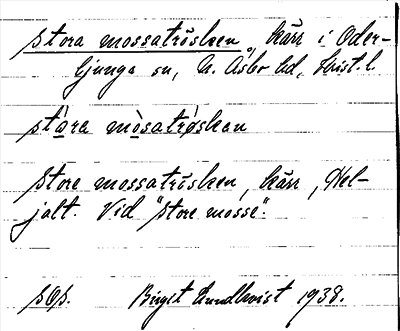 stora mossatrösken, kärr i Oder-
ljunga sn, N. Åsbo hd, Krist. l.
stòra mòsatrỏsken
Store mossatrösken, kärr, Hel-
jalt. Vid "store mosse".
sOp. Birgit Lundkvist 1938.